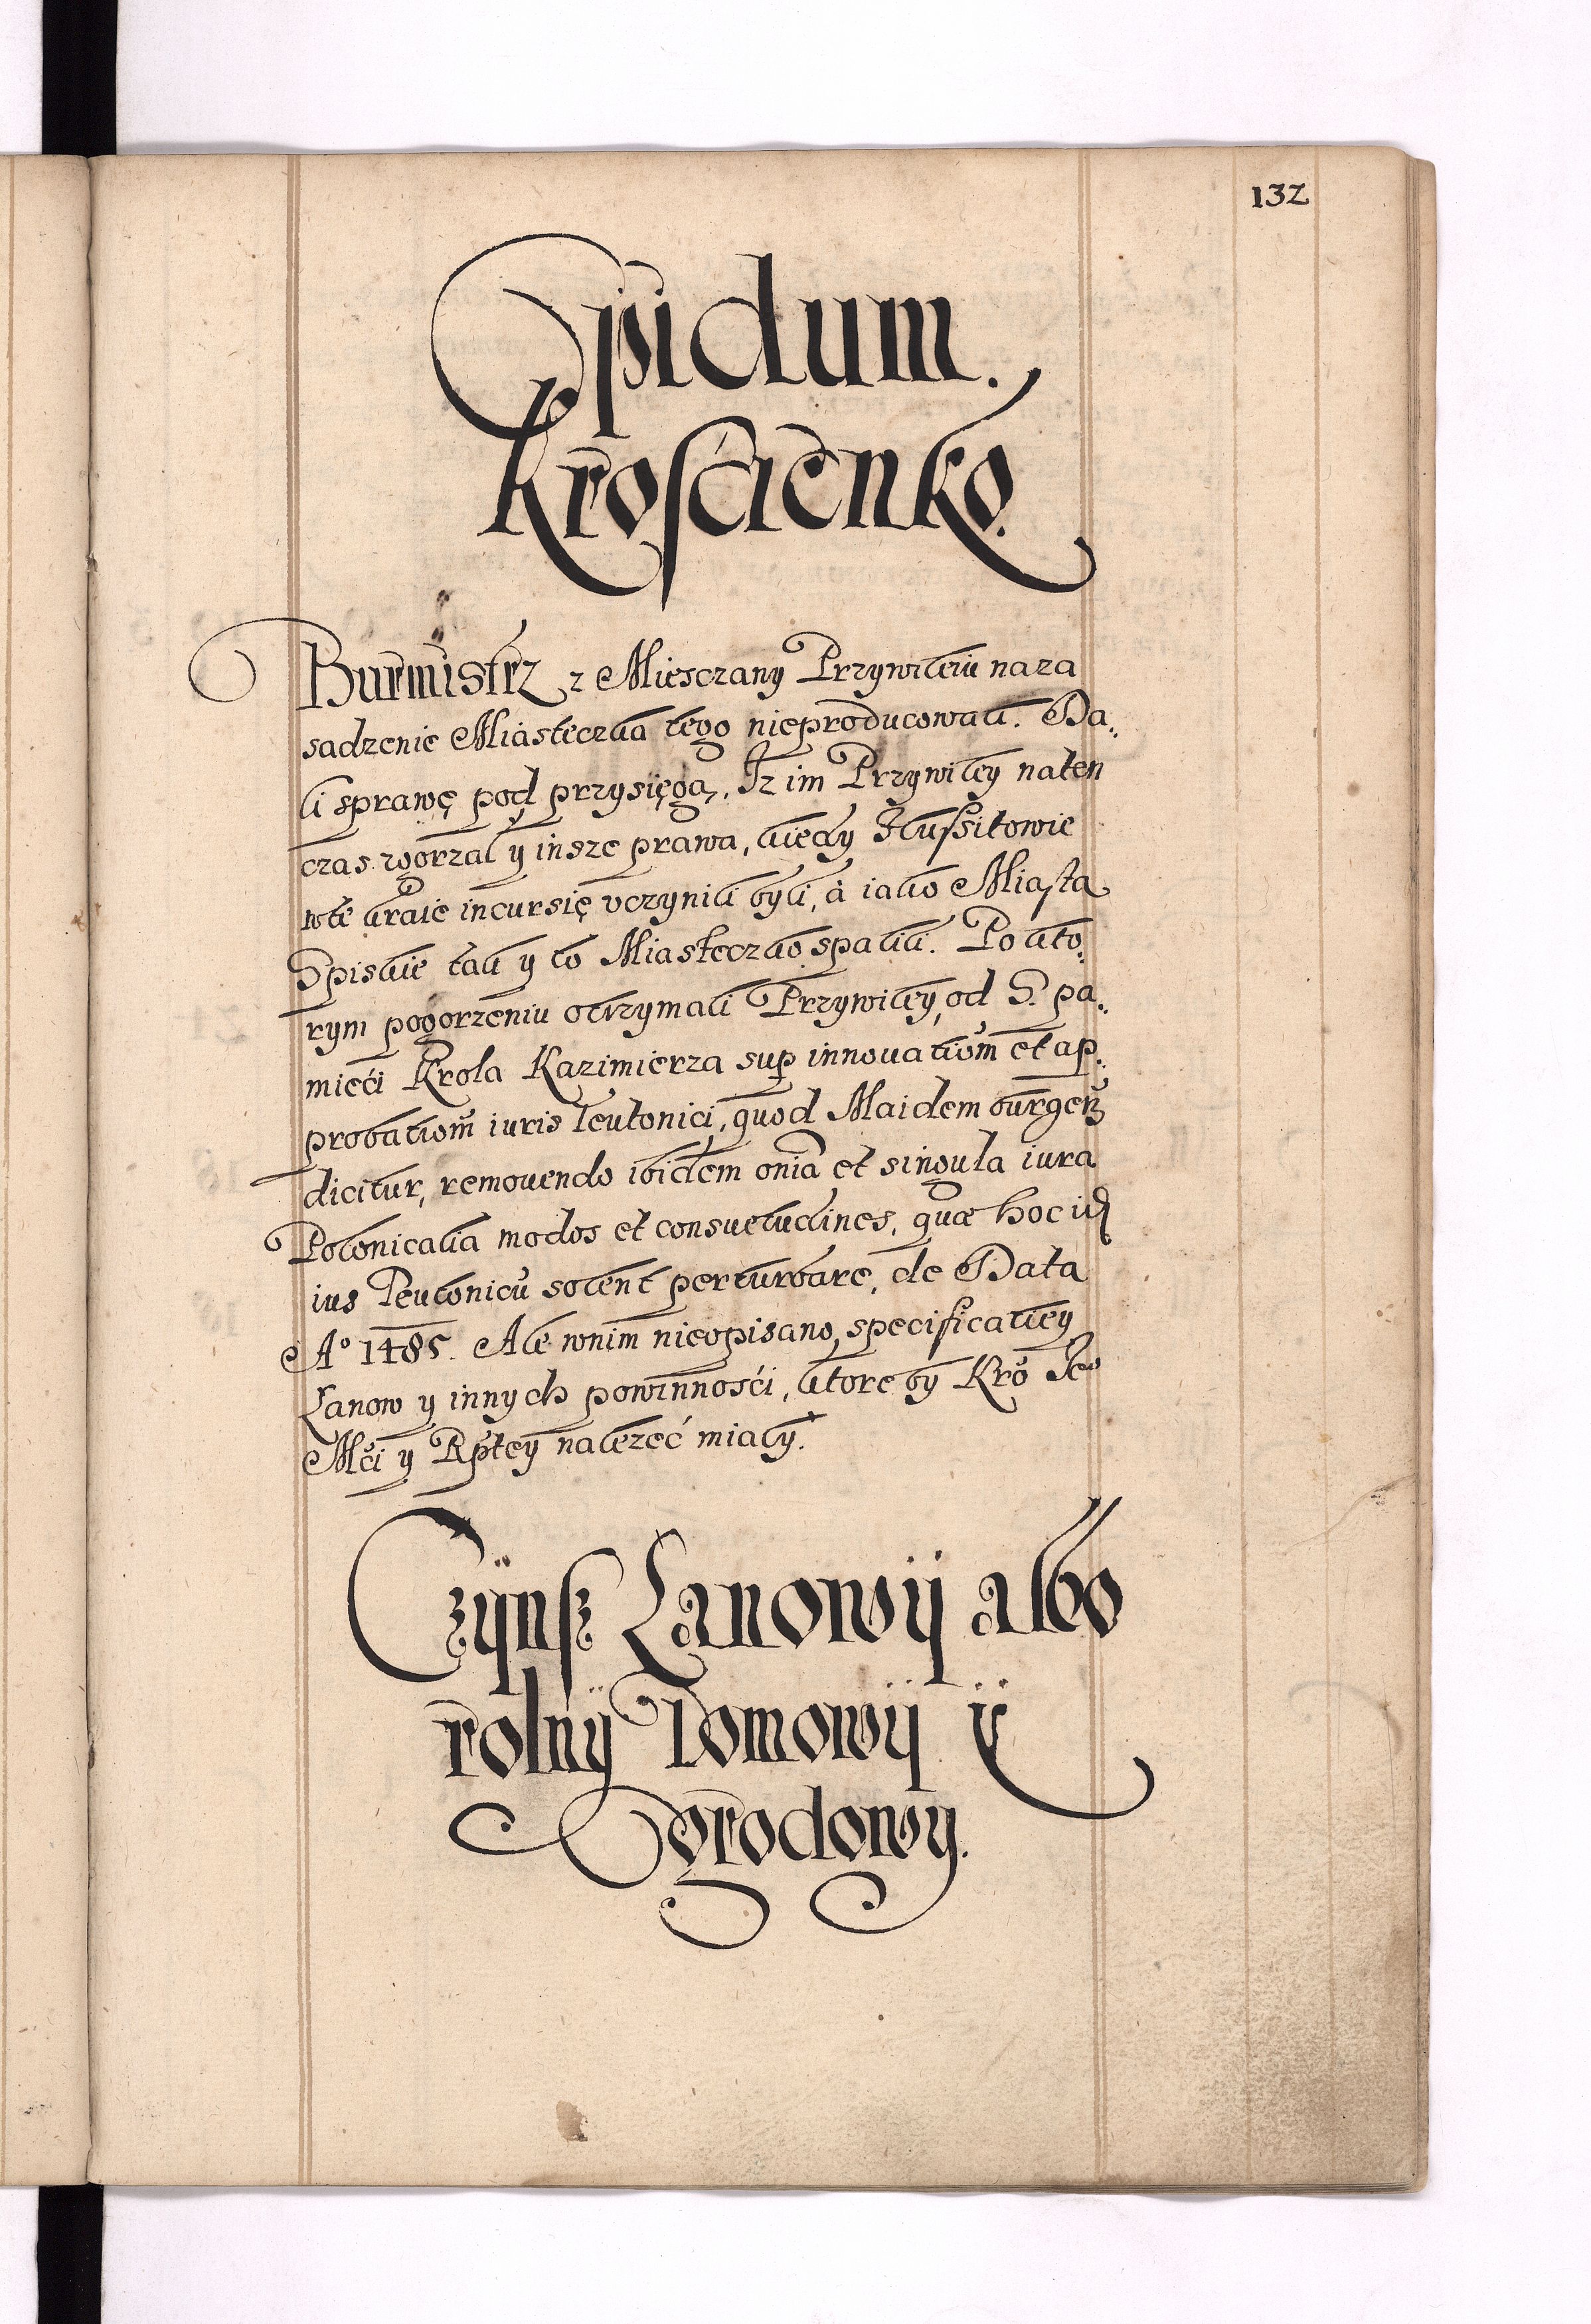 132
Opidum.
Krosćienko.
Burmistrz z Miesczany Przywileiu na za
sadzenie Miasteczka tego nieproducowali. Da„
li sprawę pod przysięgą, Iz im Przywiley na ten
czas zgorzał y insze prawa, kiedy Hussitowie
w te kraie incursię vczynili byli, á iako Miasta
Spiskie tak y to Miasteczko spalili. Po kto„
rym pogorzeniu otrzymali Przywiley, od S. pa„
mieći Krola Kazimierza sup innouationẽ et ap„
probationẽ iuris Teutonici, quod Maidemburgeñ
dicitur, remouendo ibidem onia et singula iura
Polonicalia modos et consuetudines, quæ hoc
ius Teutonicũ solent perturbare, de Data
Aº 1485. Ale w nim nieopisano, specificatiey
Łanow y innych powinnosći, ktore by Kro Ie°
Mći y Rptey nalezeć miały.
Czÿnsz Łanowÿ albo
rolnÿ Domowÿ ÿ
Ogrodowy.